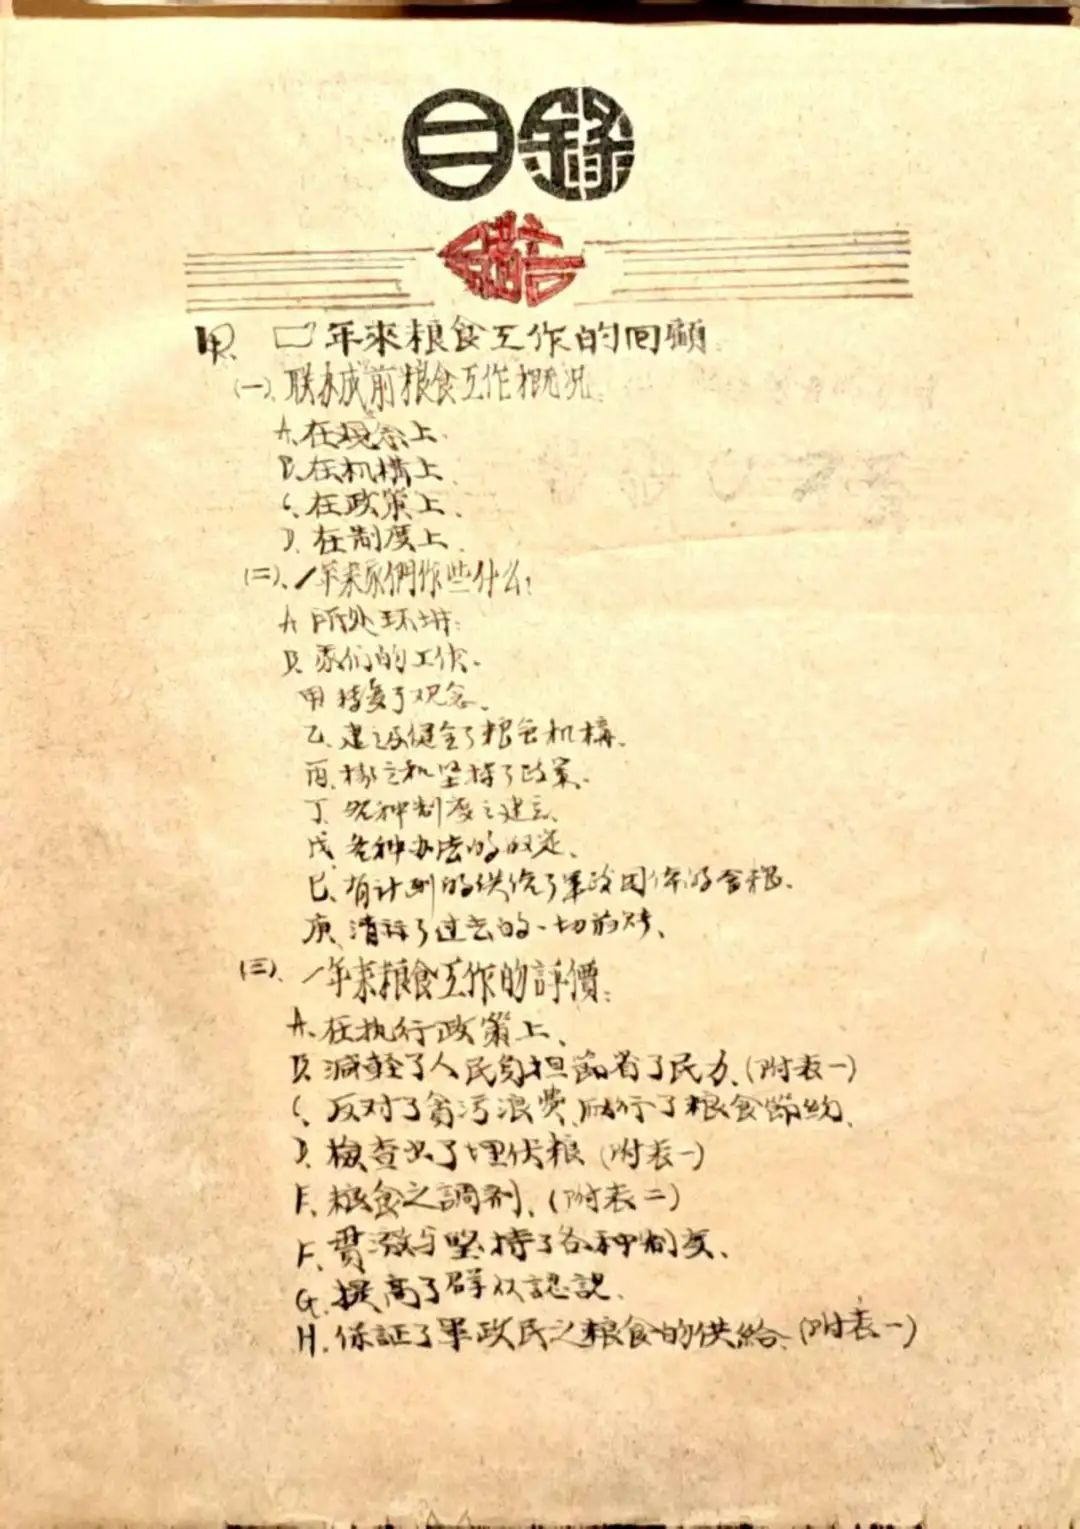 目録
甲、一年來粮食工作的回顧
(一)、联办成前粮食工作概况、
A、在观念上、
B、在机構上、
C、在政策上、
D、在制度上、
(二)、一年来我們作些什么:
A 所处环境:
B、我们的工作、
甲 轉变了观念、
乙、建立健全了粮食机構、
丙、树立和坚持了政策、
丁、各种制度之建立、
戊 各种办法的改定、
己、有计划的供给了軍政团体的食粮、
庚、清理了过去的一切
(三)、一年来粮食工作的評價:
A、在执行政策上、
B、減輕了人民負担節省了民力、(附表一)
C、反对了貪污浪費、励行了粮食節約、
D、檢查出了埋伏粮 (附表一)
E、粮食之調剂、(附表二)
F、貫澈与坚持了各种制度、
G、提高了群众認識、
H、保証了軍政民之粮食的供給、(附表一)